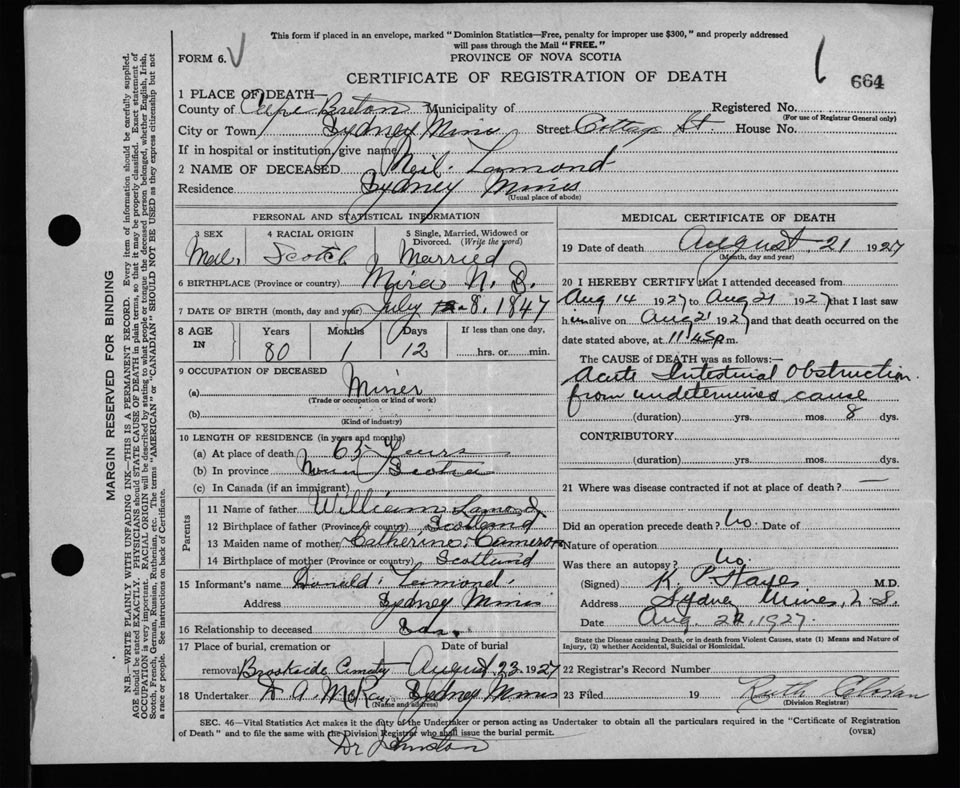 This form if placed in an envelope, marked "Dominion Statistics—Free, penalty for improper use $300," and properly addressed
will pass through the Mail "FREE."
FORM 6. V
PROVINCE OF NOVA SCOTIA
CERTIFICATE OF REGISTRATION OF DEATH
664
1 PLACE OF DEATH—
County of Cape Breton Municipality of Registered No.
(For use of Registrar General only)
City or Town Sydney Mines Street Cottage St. House No.
If in hospital or institution, give name
2 NAME OF DECEASED Neil Lamond
Residence Sydney Mines
(Usual place of abode)
PERSONAL AND STATISTICAL INFORMATION
3 SEX 4 RACIAL ORIGIN 5 Single, Married, Widowed or
Divorced. (Write the word)
Male Scotch Married
6 BIRTHPLACE (Province or country) Mira N. S.
7 DATE OF BIRTH (month, day and year) July 8. 1847
8 AGE IN Years Months Days If less than one day,
80 1 12 hrs. or min.
9 OCCUPATION OF DECEASED
(a) Miner
(Trade or occupation or kind of work)
(b)
(Kind of industry)
10 LENGTH OF RESIDENCE (in years and months)
(a) At place of death 65 Years
(b) In province Nova Scotia
(c) In Canada (if an immigrant)
Parents
11 Name of father William Lamond
12 Birthplace of father (Province or country) Scotland
13 Maiden name of mother Catherine Cameron
14 Birthplace of mother (Province or country) Scotland
15 Informant's name Donald Lamond
Address Sydney Mines
16 Relationship to deceased Son.
17 Place of burial, cremation or Date of burial
removal Brookside Cemetery August 23 1927
18 Undertaker A. McKay, Sydney Mines
(Name and address)
MEDICAL CERTIFICATE OF DEATH
19 Date of death August 21 1927
(Month, day and year)
20 I HEREBY CERTIFY that I attended deceased from
Aug 14 1927 to Aug 21 1927 that I last saw
him alive on Aug 21 1927 and that death occurred on the
date stated above, at 11.45 p m.
The CAUSE of DEATH was as follows:—
Acute Intestinal Obstruction
from undetermined cause
(duration) yrs. mos. 8 dys.
CONTRIBUTORY
(duration) yrs. mos. dys.
21 Where was disease contracted if not at place of death? —
Did an operation precede death? No. Date of
Nature of operation
Was there an autopsy? No.
(Signed) K. P. Hayes M.D.
Address Sydney Mines, N. S.
Date Aug 22, 1927.
State the Disease causing Death, or in death from Violent Causes, state (1) Means and Nature of
Injury, (2) whether Accidental, Suicidal or Homicidal.
22 Registrar's Record Number
23 Filed 19 Ruth
(Division Registrar)
SEC. 46—Vital Statistics Act makes it the duty of the Undertaker or person acting as Undertaker to obtain all the particulars required in the "Certificate of Registration
of Death" and to file the same with the Division Registrar who shall issue the burial permit.
(OVER)
Dr Johnston
MARGIN RESERVED FOR BINDING
N.B.—WRITE PLAINLY WITH UNFADING INK—THIS IS A PERMANENT RECORD. Every item of information should be carefully supplied.
AGE should be stated EXACTLY. PHYSICIANS should STATE CAUSE OF DEATH in plain terms, so that it may be properly classified. Exact statement of
OCCUPATION is very important. RACIAL ORIGIN will be described by stating to what people or tongue the deceased person belonged, whether English, Irish,
Scotch, French, German, Russian, Ruthenian, etc. The terms "AMERICAN" or "CANADIAN" SHOULD NOT BE USED as they express citizenship but not
a race or people. See instructions on back of Certificate.